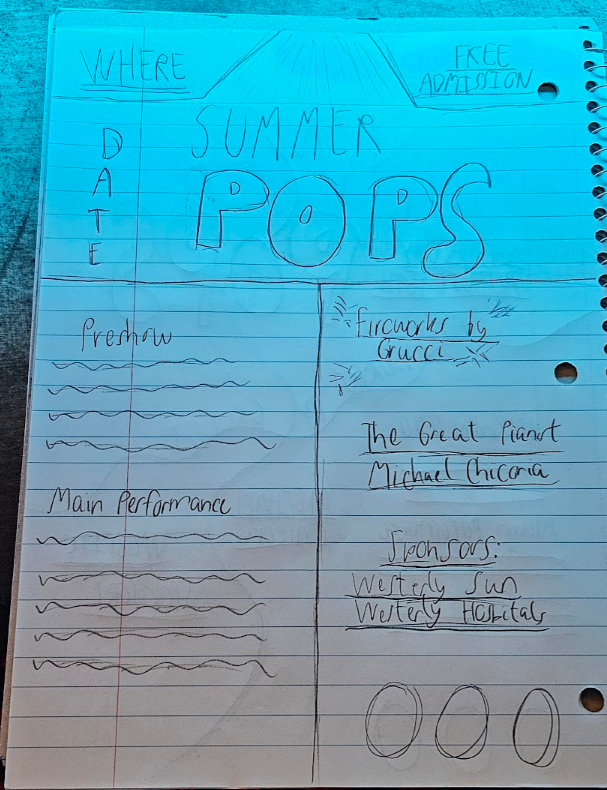 WHERE
FREE
ADMISSION
SUMMER
POPS
DATE
Preshow
Fireworks by
Grucci
The Great Pianist
Michael Chicoria
Main Performance
Sponsors:
Westerly Sun
Westerly Hospitals